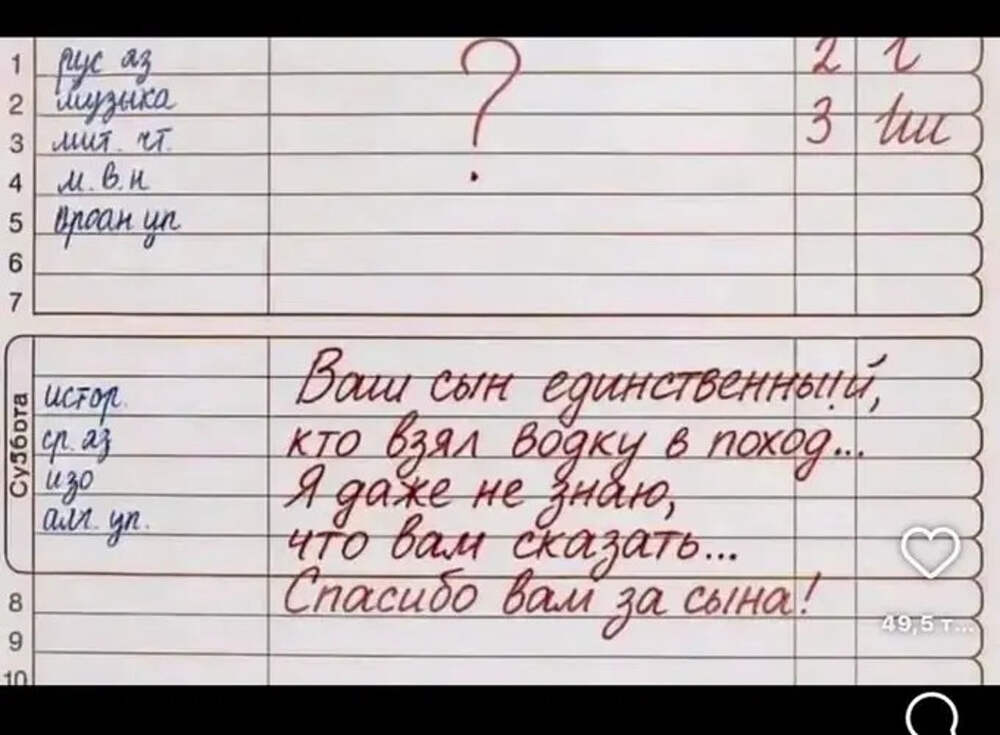 1 рус яз ? 2
2 музыка 3
3 лит. чт.
4 м.в.н
5
6
7
Суббота
истор.
изо
Ваш сын единственный,
кто взял водку в поход...
Я даже не знаю,
что вам сказать...
Спасибо вам за сына!
8
9
10
49,5 т...